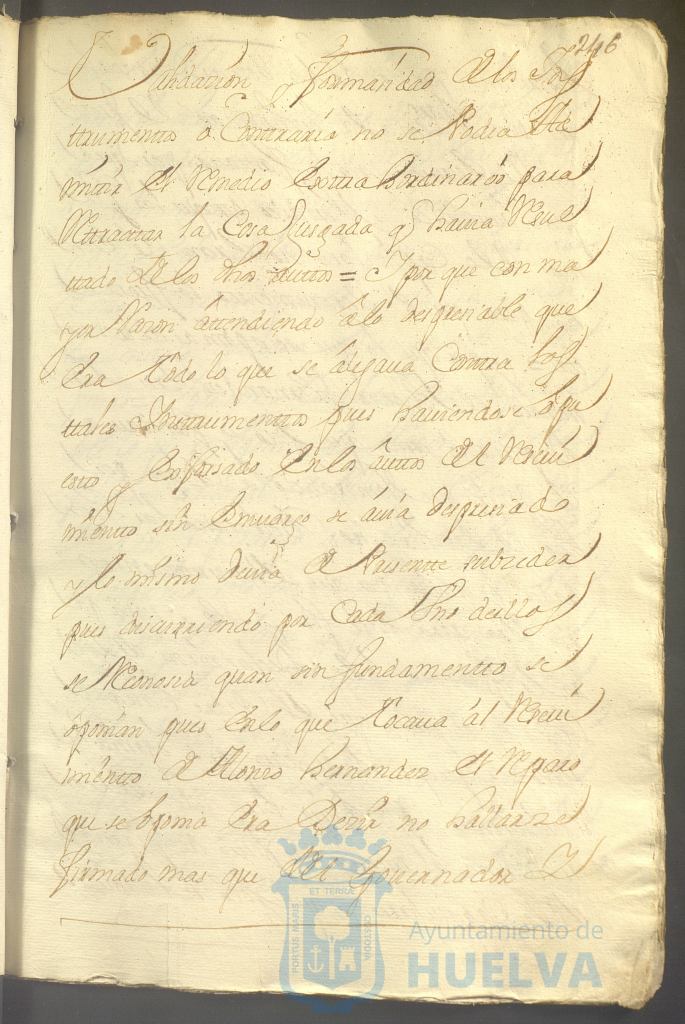 246
Validacion y formalidad de los Ins
ttrumentto o Contrario no se Podia
el Remedio Esttra hordinario para
Rettractar la Cosa Jusgada q havia Resul
ttado de los dhos auttos = I por que con ma
yor Razon attendiendo a lo despresiable que
Era ttodo lo que se alegava Contra los
ttales Instrumenttos pues haviendose opu
estto y Enlos auttos del Resevi
mientto sin Embargo se avia despresiado
y lo mismo devia de Presentte subzeder
pues discurriendo por Cada Uno dellos
se Reconosia quan sin fundamentto se
oponian pues Enlo que ttocava al Resevi
mientto de Alonzo Hernandez el Reparo
que se oponia Era Dezir no hallarze
firmado mas que del Governador I
PORTUS MARIS ET TERRAE CUSTODIA
Ayuntamiento de
HUELVA